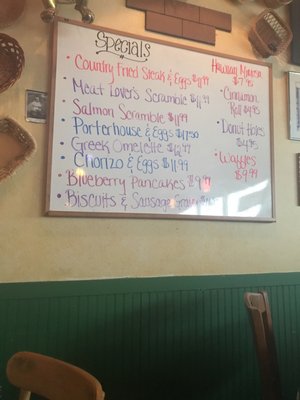 Specials
• Country Fried Steak & Eggs $11.99
• Meat Lover's Scramble $11.99
• Salmon Scramble $11.99
• Porterhouse & Eggs
• Greek Omelette
• Chorizo & Eggs $11.99
• Blueberry Pancakes $9.99
• Biscuits & Sausage
Hawaiian
$7.95
• Cinnamon
Roll $4.95
• Donut Holes
$4.95
• Waffles
$9.99